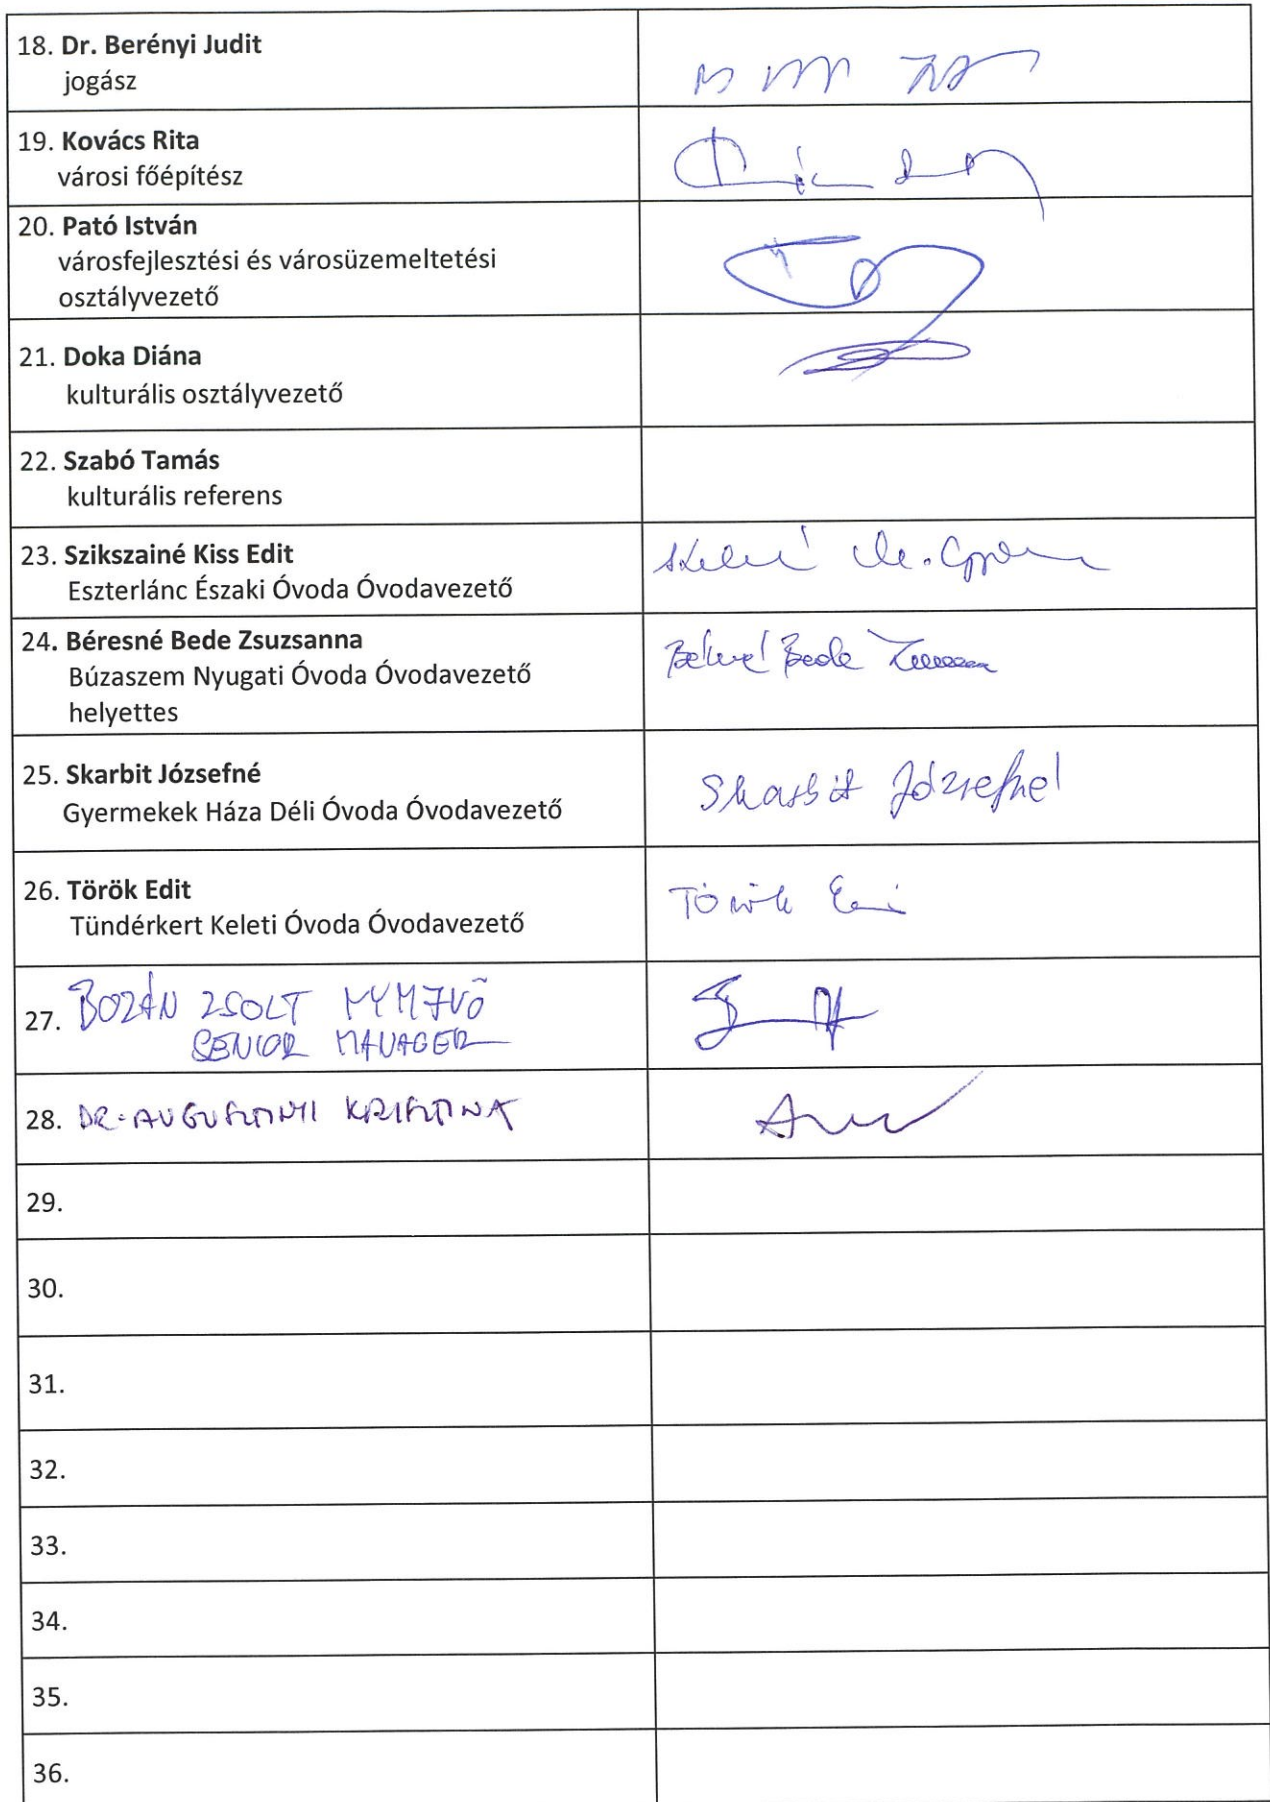 18. Dr. Berényi Judit
jogász
19. Kovács Rita
városi főépítész
20. Pató István
városfejlesztési és városüzemeltetési
osztályvezető
21. Doka Diána
kulturális osztályvezető
22. Szabó Tamás
kulturális referens
23. Szikszainé Kiss Edit
Eszterlánc Északi Óvoda Óvodavezető
24. Béresné Bede Zsuzsanna
Búzaszem Nyugati Óvoda Óvodavezető
helyettes
Bede
25. Skarbit Józsefné
Gyermekek Háza Déli Óvoda Óvodavezető
Skarbit Józsefné
26. Török Edit
Tündérkert Keleti Óvoda Óvodavezető
Török
27. BOZÁN ZSOLT
SENIOR MANAGER
28. DR. AUGUSZTINYI KRISZTINA
29.
30.
31.
32.
33.
34.
35.
36.